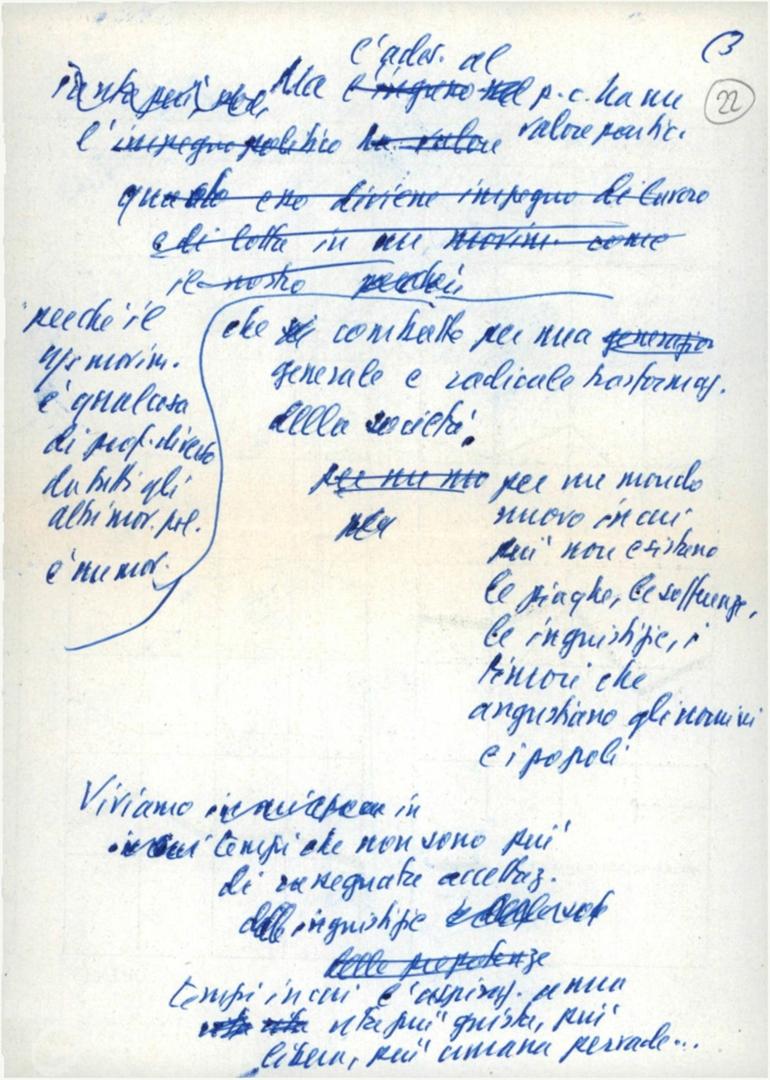 (3
22
l'ades. al
Ma l'impegno nel p.c. ha un
l'impegno politico ha valore valore partic.
quando esso diviene impegno di lavoro
e di lotta in un movim. come
il nostro perché
perché il
ns. movim.
è qualcosa
di prof. diverso
da tutti gli
altri mov. pol.
è un mov.
che si combatte per una
generale e radicale trasformaz.
della società,
per un mo per un mondo
per nuovo in cui
più non esistano
le piaghe, le sofferenze,
le ingiustizie, i
timori che
angustiano gli uomini
e i popoli
Viviamo in
in cui tempi che non sono più
di rassegnata accettaz.
delle ingiustizie
delle prepotenze
tempi in cui l'aspiraz. a una
vita più giusta, più
libera, più umana pervade...